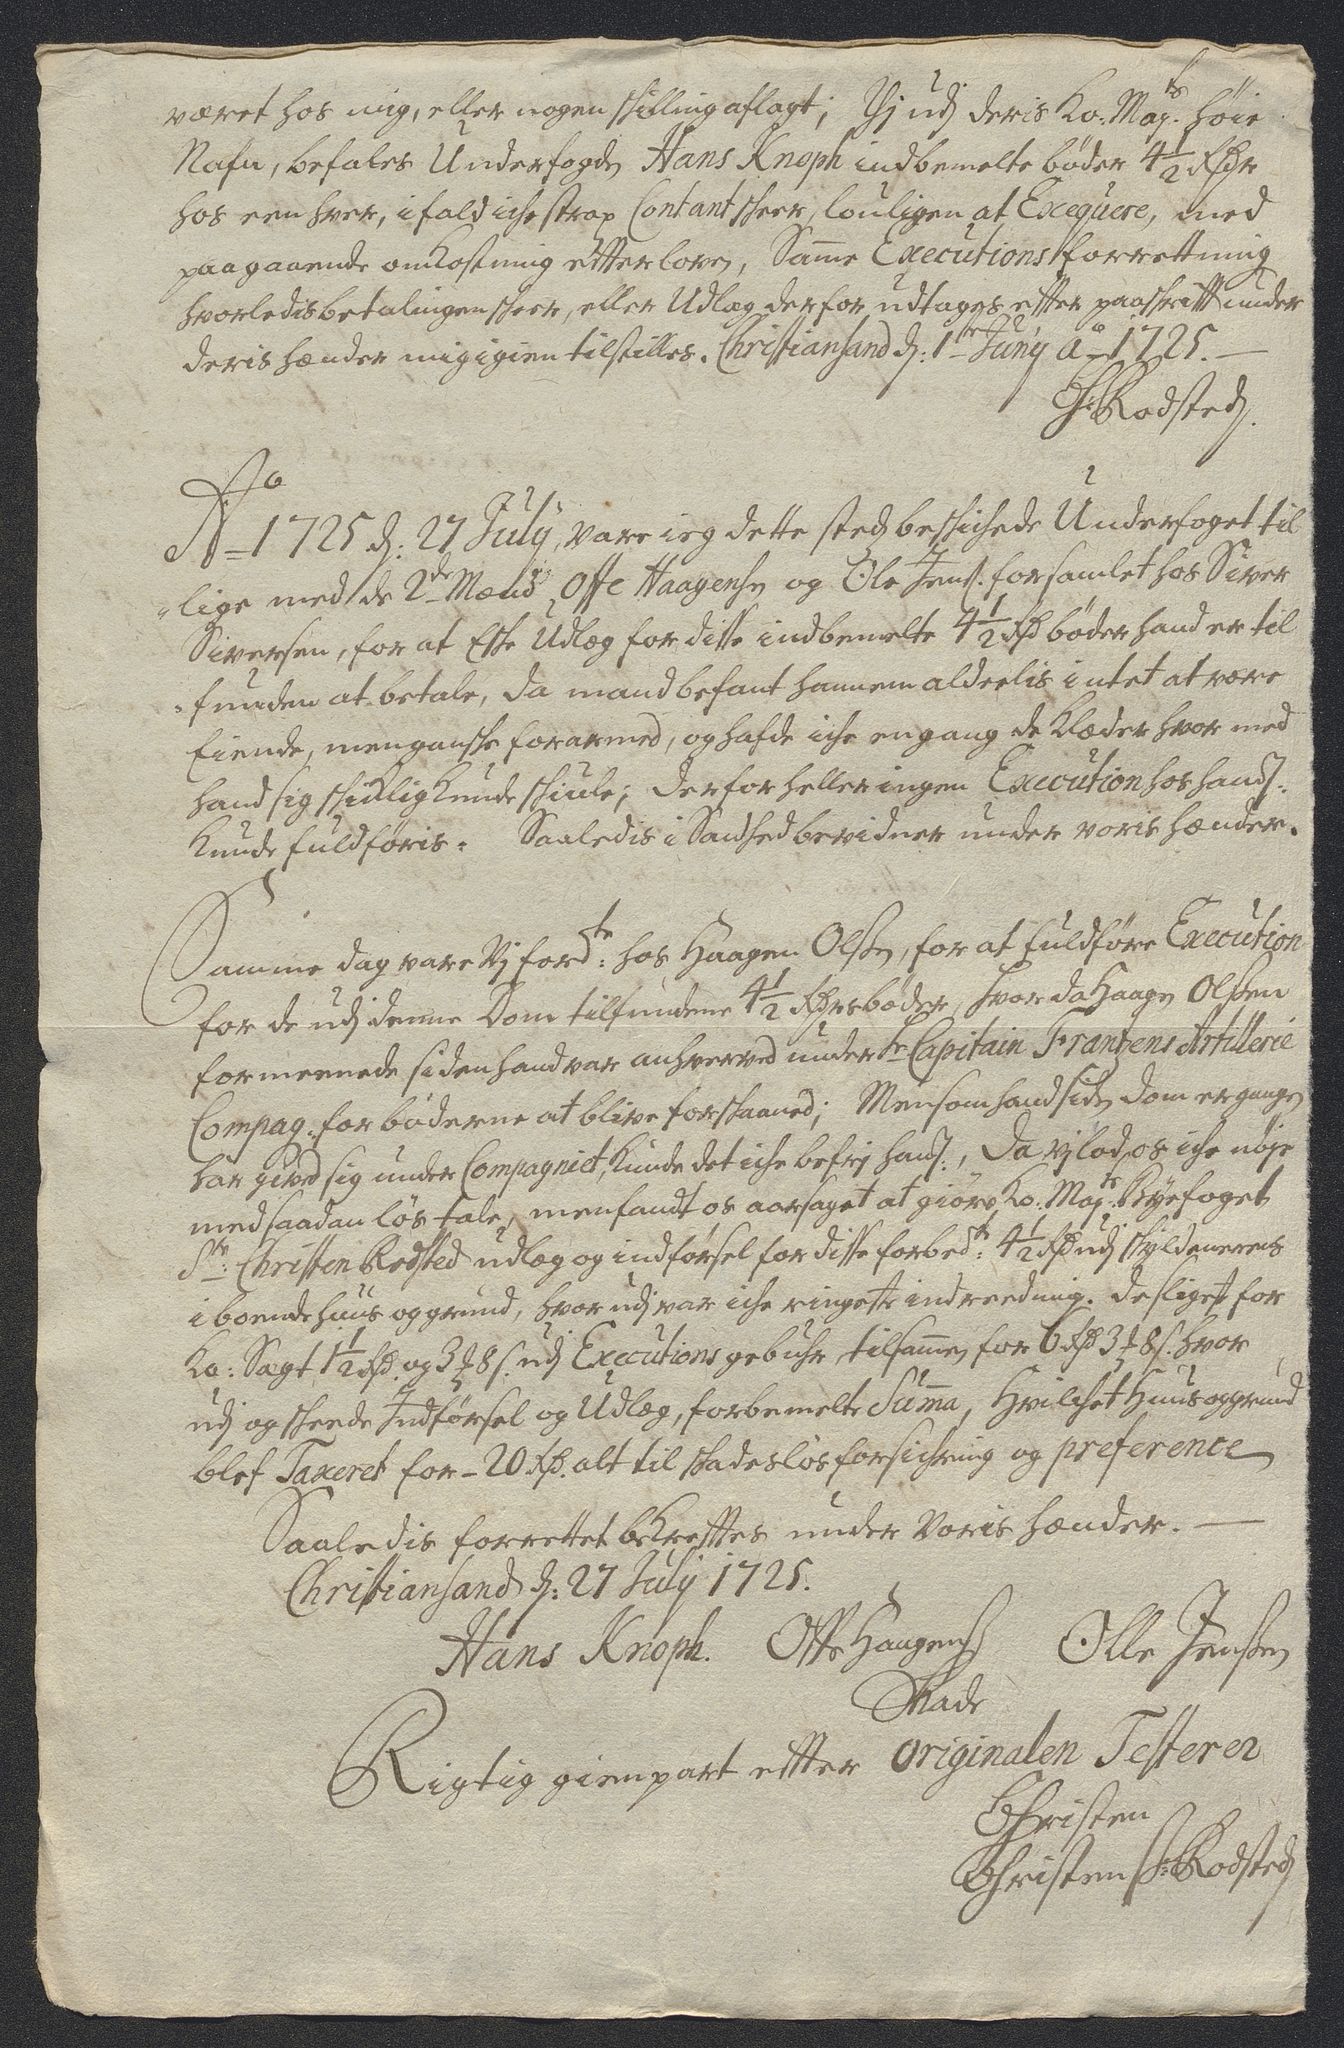 været hos mig, eller nogen skilling aflagt; Thj udj deris Ko: May:ts høie
Nafn, befales Underfogden Hans Knoph indbemelte bøder 4½ Rdr
hos een hver, ifald iche strax Contant scheer, louligen at Execqvere, med
paagaaende omkostning effter loven, Samme Executions forretning
hvorledis betalingen scheer, eller Udlæg derfor udtages effter paaskrifft under
deris hænder mig igien tilstilles. Christiansand d: 1ste Juny Ao 1725. —
C: Rodsted.
Ao 1725 d: 27 July, vare ieg dette sted beschichede Underfoget til
„lige med de 2de Mænd, Offe Haagensen og Ole Jens: forsamlet hos Siver
Siversen, for at Eske Udlæg for disse indbemelte 4½ Rd bøder hand er til
„funden at betale, da mand befant hannem aldeelis intet at være
Eiende, men gansche forarmed, og hafde iche engang de Klæder hvor med
hand sig schicklig kunde schiule; derfor heller ingen Execution hos hands:
kunde fuldføris. Saaledis i Sandhed bevidner under voris hænder.
Samme dag vare Vj ford:te hos Haagen Olsen, for at fuldføre Execution
for de udj denne Dom tilfundene 4½ Rdrs bøder, hvor da Haagen Olssen
formeenede siden hand var anhverved under Hr Capitain Frantzens Artillerie
Compag: for bøderne at blive forskaaned; Men som hand siden dom er gangen
har gived sig under Compagniet, kunde det iche befrj hands:, da vj lod os iche nøje
med saadan løs tale, men fandt os aarsaget at giøre Ko: May:ts Byefoget
Sr: Christen Rodsted udlæg og indførsel for disse forbed:te 4½ Rd udj schyldenerens
iboende huus og grund, hvor udj var iche ringeste indreedning. desligest for
Ko: Sagt 1½ Rd. og 3 ₰ 8 s. udj Executions gebuhr, tilsammen for 6 Rd 3 ₰ 8 s. hvor
udj og scheede Indførsel og Udlæg, forbemelte Summa, hvilchet Huus og grund
blef Taxeret for 20 Rd. alt til skadesløs forsichring og preference
Saaledis forrettet bekreffttes under Voris hænder. —
Christiansand d: 27 July 1725.
Hans Knoph. Offe Haagens Olle Jenssen
Skade
Rigtig gienpart effter originalen Testerer
Christen
Christen Rodsted